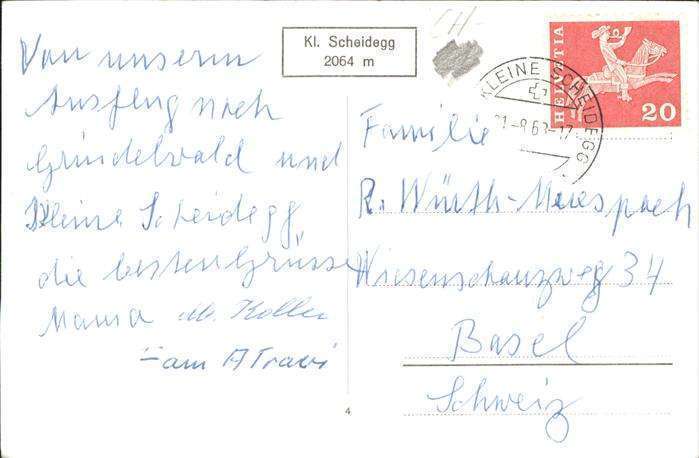 Von unserm
Ausflug nach
Grindelwald und
Kleine Scheidegg
die besten Grüsse
Mama M. Koller
Kl. Scheidegg
2064 m
CH-
KLEINE SCHEIDEGG
21-8.63-17
HELVETIA
20
Familie
R. Würth-Meespach
Wiesenschanzweg 34
Basel
Schweiz
4